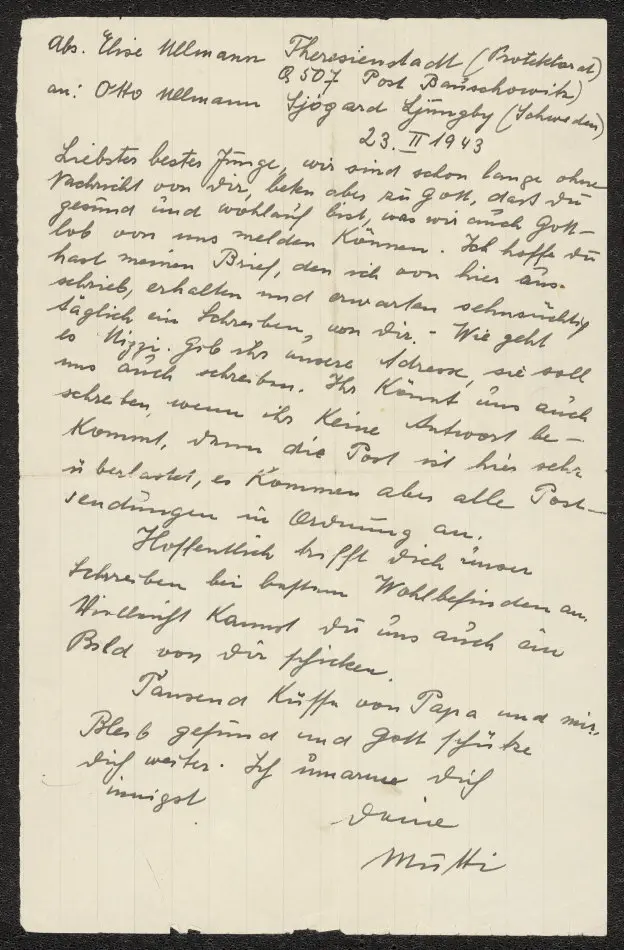 Abs. Elise Ullmann Theresienstadt (Protektorat)
Q 507 Post Bauschowitz)
an: Otto Ullmann Sjögard Ljungby (Schweden)
23. II 1943
Liebster bester Junge, wir sind schon lange ohne
Nachricht von Dir, beten aber zu Gott, dass Du
gesund und wohlauf bist, was wir auch Gott-
lob von uns melden können. Ich hoffe Du
hast meinen Brief, den ich von hier aus
schrieb, erhalten und erwarten sehnsüchtig
täglich ein Schreiben von Dir. - Wie geht
es Nizzi. Gib ihr unsere Adresse, sie soll
uns auch schreiben. Ihr könnt uns auch
schreiben, wenn ihr keine Antwort be-
kommt, denn die Post ist hier sehr
überlastet, es kommen aber alle Post-
sendungen in Ordnung an.
Hoffentlich trifft Dich unser
Schreiben bei bestem Wohlbefinden an.
Vielleicht kannst Du uns auch ein
Bild von Dir schicken.
Tausend Küsse von Papa und mir.
Bleib gesund und Gott schütze
Dich weiter. Ich umarme Dich
innigst
Deine
Mutti